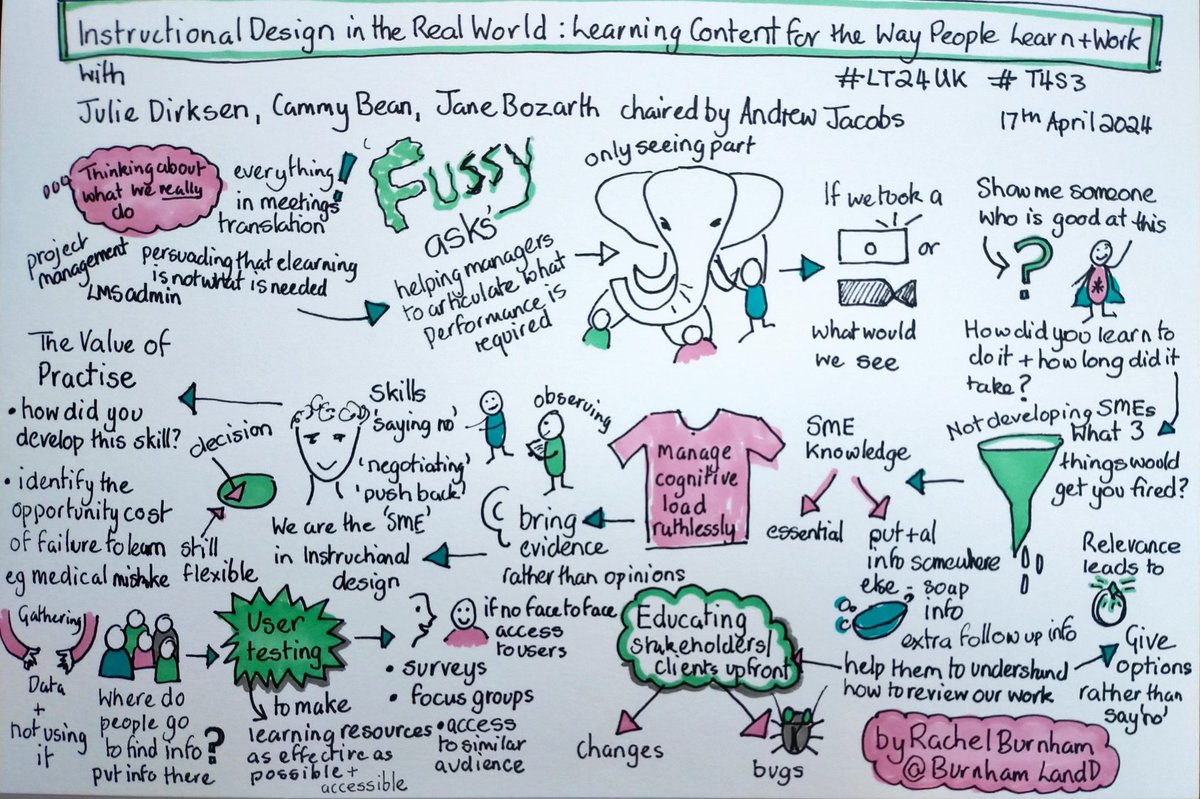 Instructional Design in the Real World : Learning Content for the Way People Learn + Work
with
#LT24UK # T4S3
Julie Dirksen, Cammy Bean, Jane Bozarth chaired by Andrew Jacobs
17th April 2024
Thinking about
what we really
do
everything!
in meetings
translation
project
management
LMS admin
persuading that elearning
is not what is needed
Fussy
asks'
helping managers
to articulate what
performance is
required
only seeing part
If we took a
or
what would
we see
Show me someone
who is good at this
?
How did you learn to
do it + how long did it
take?
Not developing SMEs
What 3
things would
get you fired?
SME
Knowledge
essential
put + al
info somewhere
else - soap
info
extra follow up info
manage
cognitive
load
ruthlessly
observing
bring
evidence
rather than opinions
Skills
'saying no'
'negotiating'
'push back'
We are the 'SME'
in Instructional
design
The Value of
Practise
• how did you
develop this skill?
• identify the
opportunity cost
of failure to learn
eg medical mistake
decision
still
flexible
Gathering
Data
+
not using
it
Where do
people go
to find info ?
put info there
User
testing
to make
learning resources
as effective as
possible +
accessible
if no face to face
access
to users
• surveys
• focus groups
• access
to similar
audience
Educating
stakeholders/
clients upfront
changes
bugs
help them to understand
how to review our work
Relevance
leads to
Give
options
rather than
say 'no'
by Rachel Burnham
@ Burnham LandD